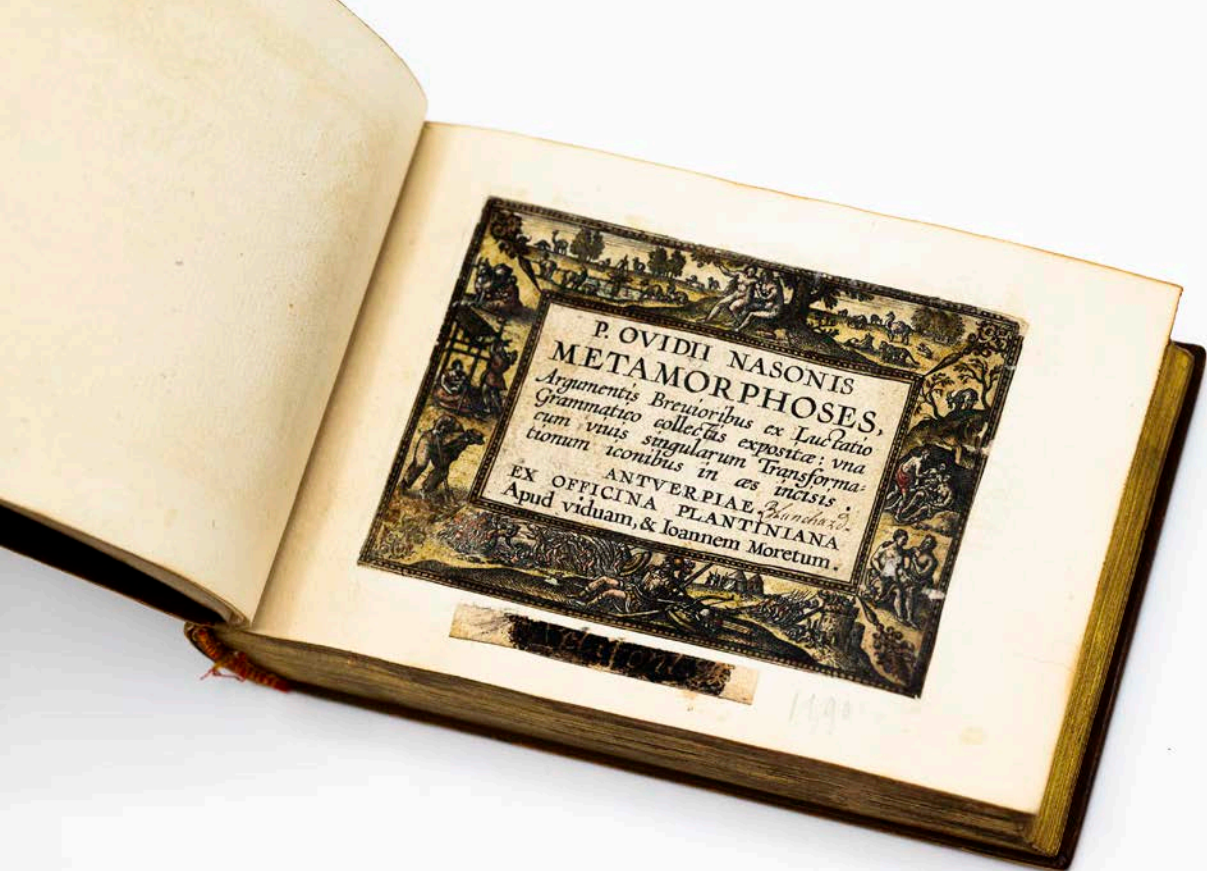 P. OVIDII NASONIS
METAMORPHOSES,
Argumentis Breuioribus ex Luctatio
Grammatico collectis expositæ: vna
cum viuis singularum Transforma⸗
tionum iconibus in æs incisis.
ANTVERPIAE, Blanchard.
EX OFFICINA PLANTINIANA
Apud viduam, & Ioannem Moretum.